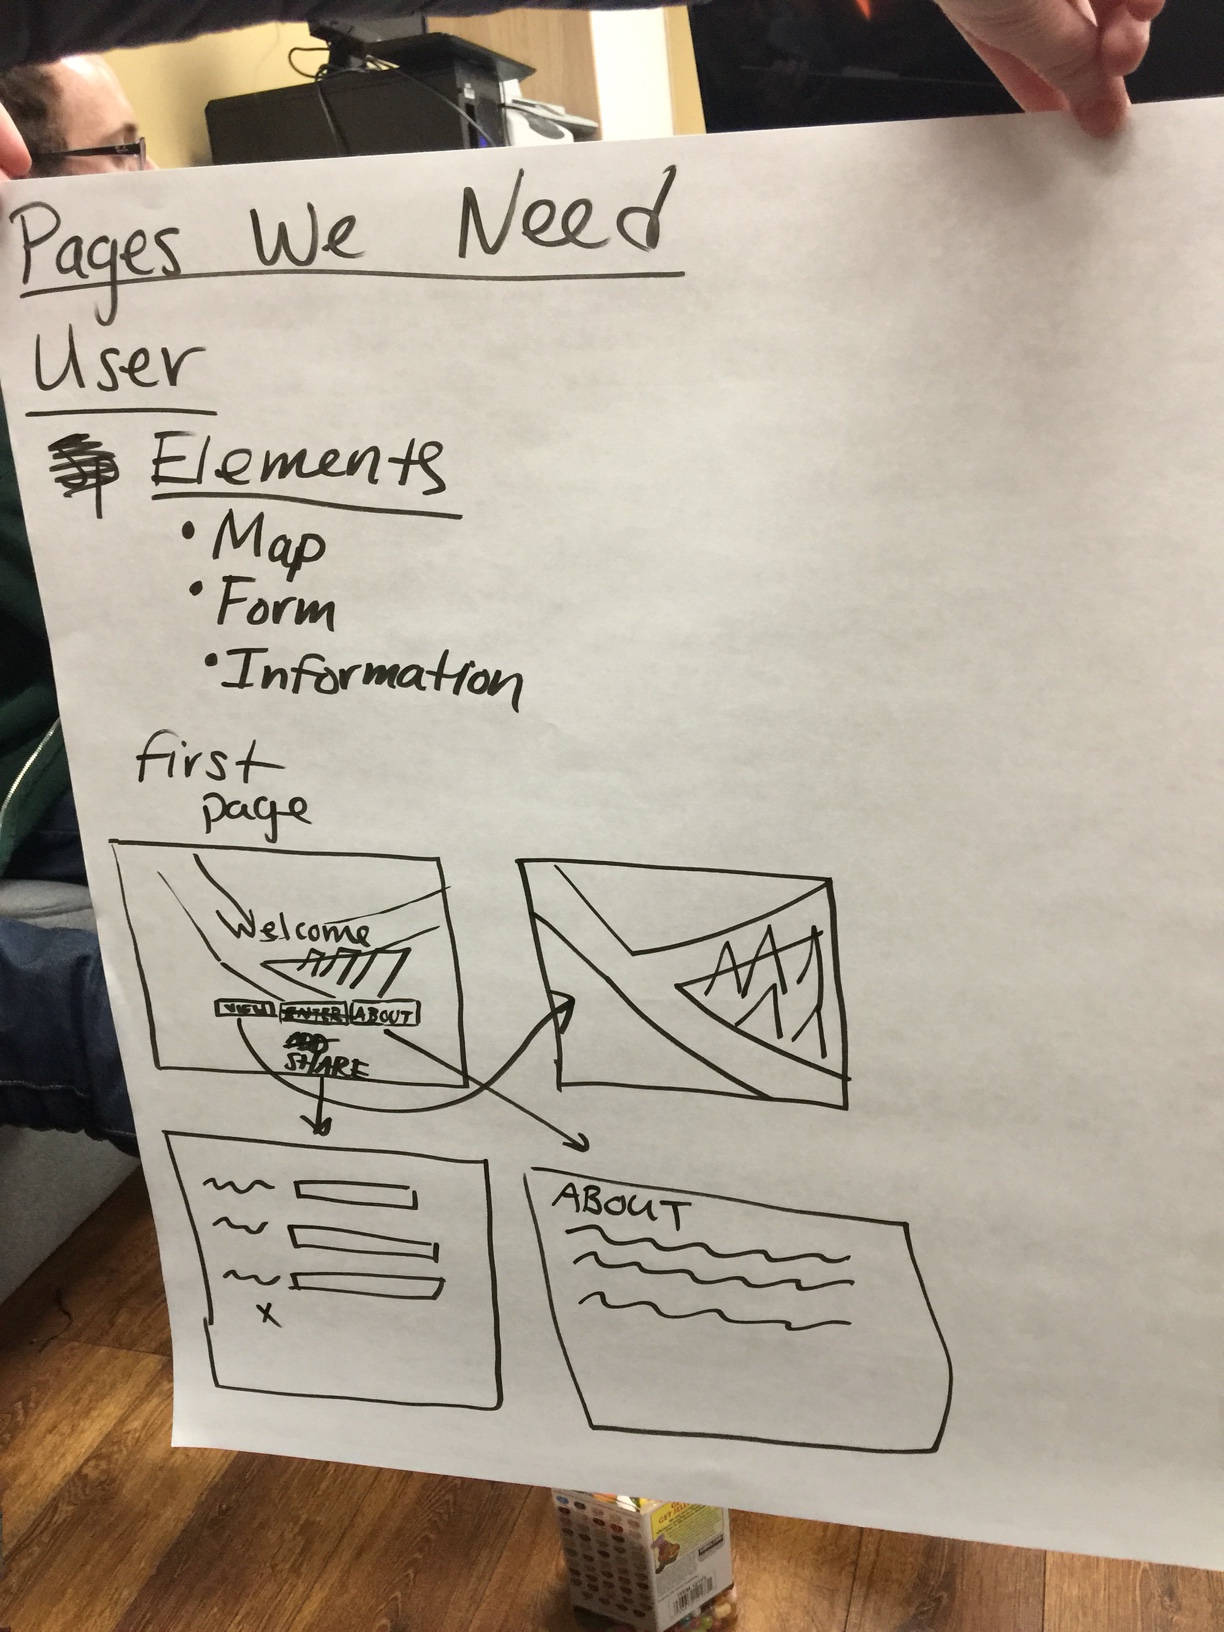 Pages We Need
User
Elements
• Map
• Form
• Information
first
page
Welcome
VIEW ENTER ABOUT
ADD
SHARE
X
ABOUT